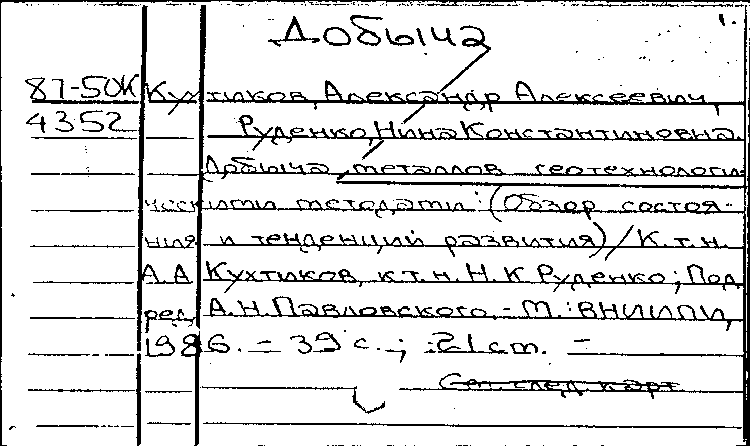 1.
Добыча
87-50К Кухтиков, Александр Алексеевич,
4352 Руденко, Нина Константиновна.
Добыча металлов геотехнологи-
ческими методами: (Обзор состоя-
ния и тенденций развития) / К.т.н.
А.А Кухтиков, к.т.н. Н.К Руденко; Под
ред. А.Н. Павловского. - М.: ВНИИПИ,
1986. - 39 с.; 21 cm. -
См. след. карт.